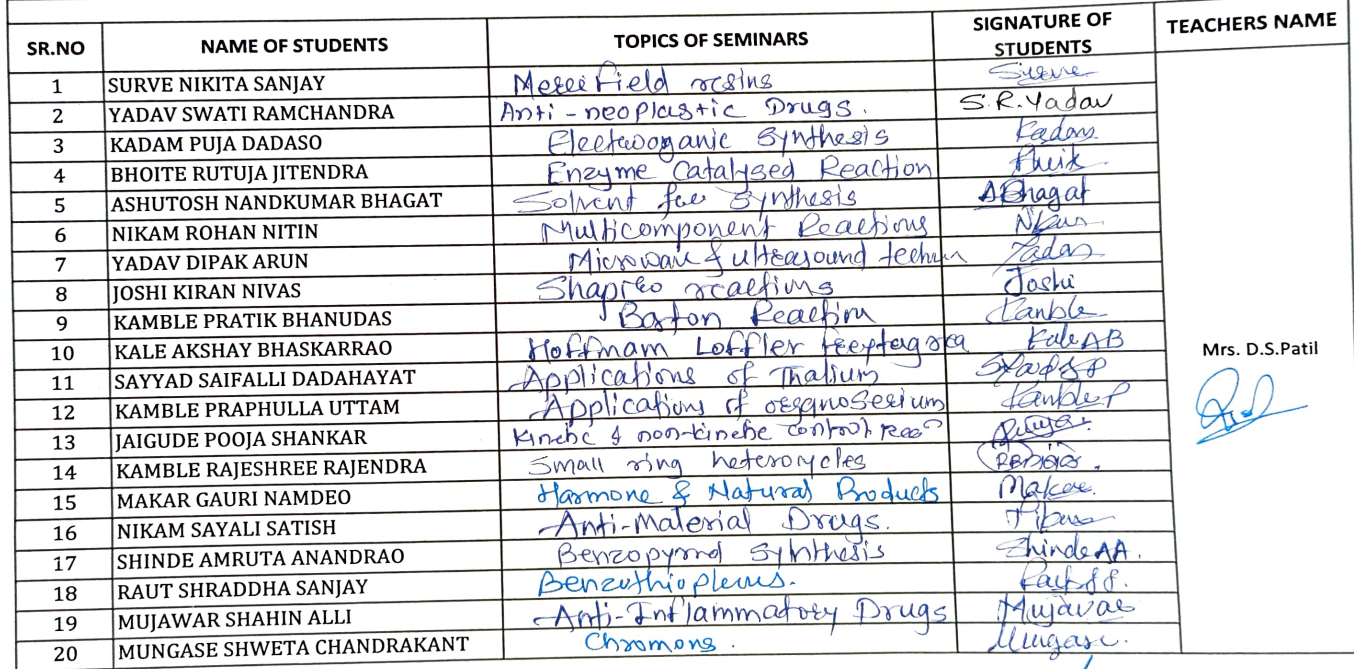 SR.NO NAME OF STUDENTS TOPICS OF SEMINARS SIGNATURE OF STUDENTS TEACHERS NAME
1 SURVE NIKITA SANJAY Merrifield resins Surve
2 YADAV SWATI RAMCHANDRA Anti-neoplastic Drugs. S.R.Yadav
3 KADAM PUJA DADASO Electroorganic Synthesis Kadam
4 BHOITE RUTUJA JITENDRA Enzyme Catalysed Reaction
5 ASHUTOSH NANDKUMAR BHAGAT Solvent free Synthesis ABhagat
6 NIKAM ROHAN NITIN Multicomponent Reactions
7 YADAV DIPAK ARUN Microwave & ultrasound techn Yadav
8 JOSHI KIRAN NIVAS Shapiro reactions Joshi
9 KAMBLE PRATIK BHANUDAS Barton Reaction Kamble
10 KALE AKSHAY BHASKARRAO Hoffmam Loffler Kale AB
11 SAYYAD SAIFALLI DADAHAYAT Applications of Thalium
12 KAMBLE PRAPHULLA UTTAM Applications of Kamble P
13 JAIGUDE POOJA SHANKAR Kinetic & non-kinetic control
14 KAMBLE RAJESHREE RAJENDRA Small ring heterocycles
15 MAKAR GAURI NAMDEO Harmone & Natural Products Makar
16 NIKAM SAYALI SATISH Anti-Material Drugs.
17 SHINDE AMRUTA ANANDRAO Synthesis Shinde AA.
18 RAUT SHRADDHA SANJAY
19 MUJAWAR SHAHIN ALLI Anti-Inflammatory Drugs Mujavar
20 MUNGASE SHWETA CHANDRAKANT Chromons. Mungase.
Mrs. D.S.Patil